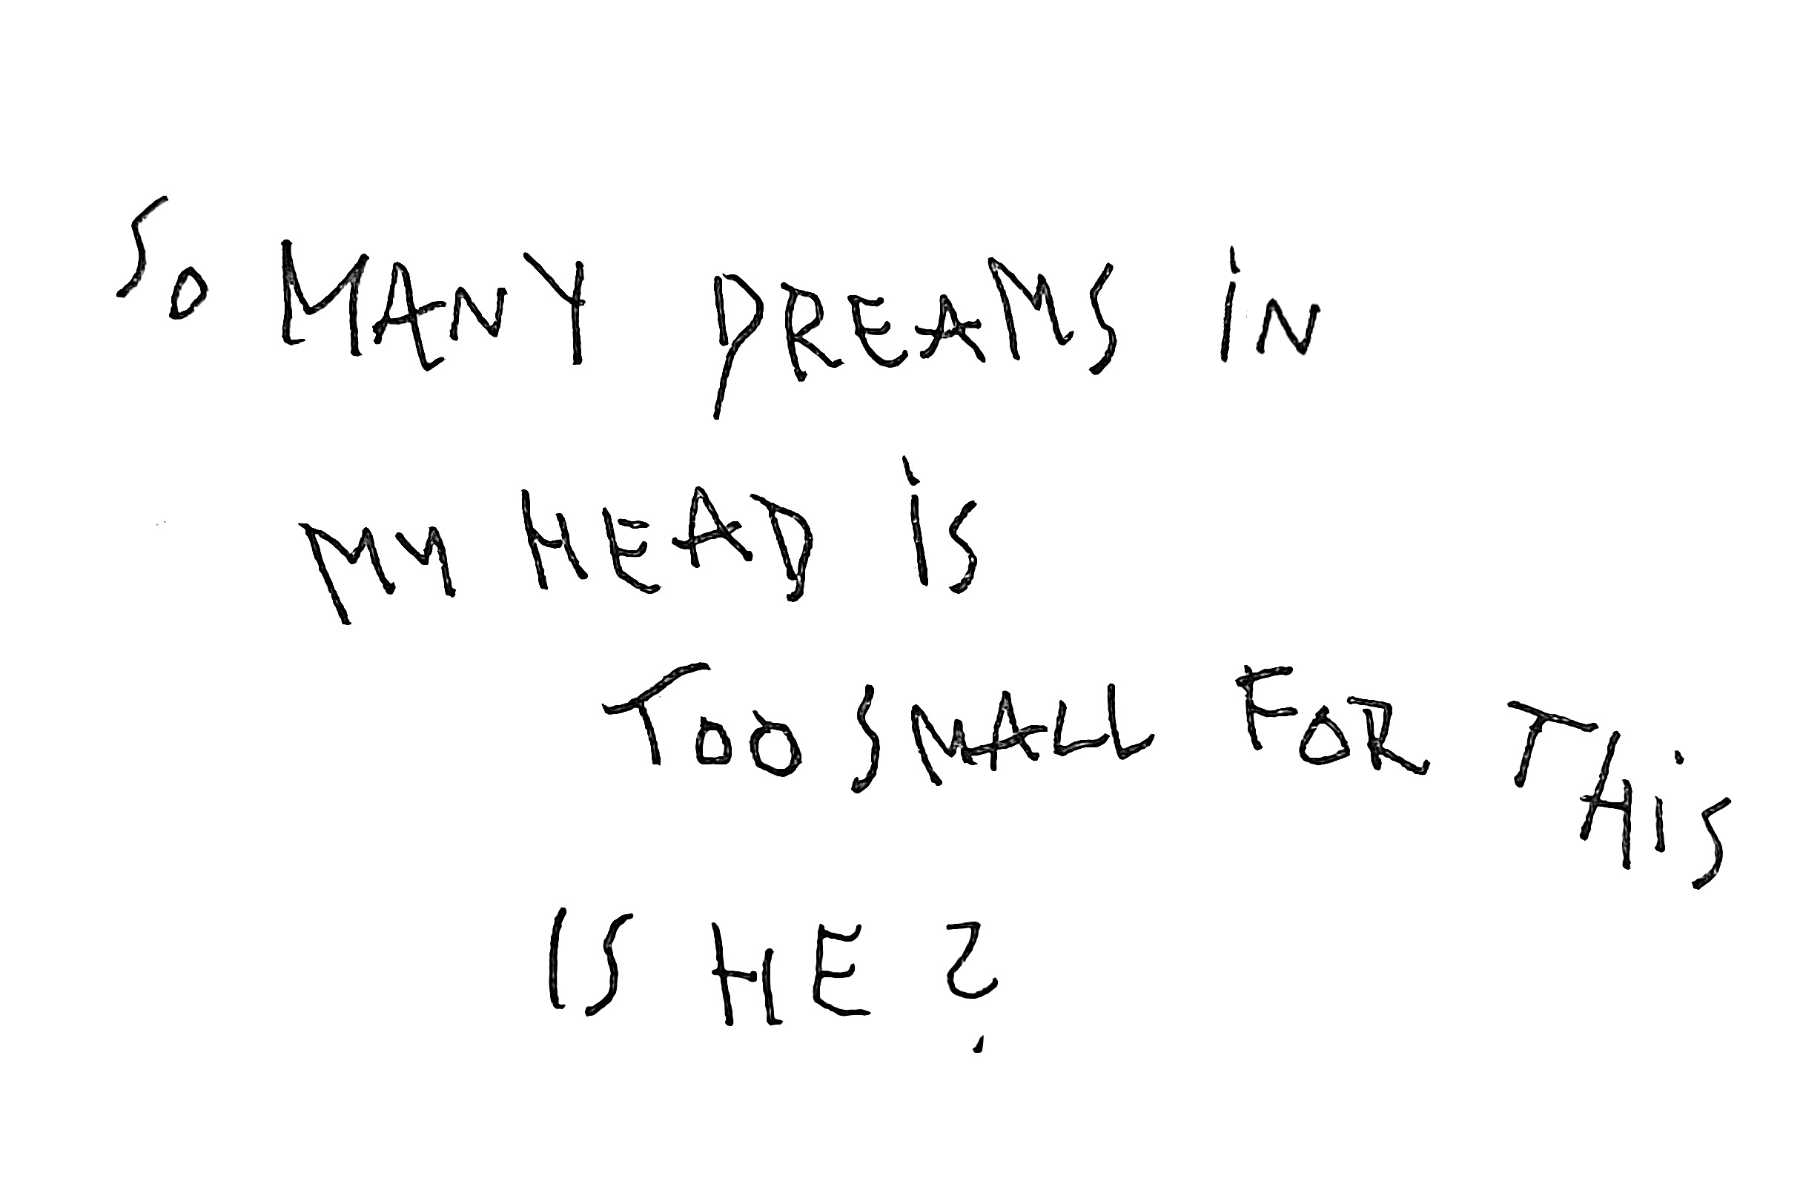 So MANY DREAMS iN
MY HEAD iS
TOO SMALL FOR THiS
IS HE ?